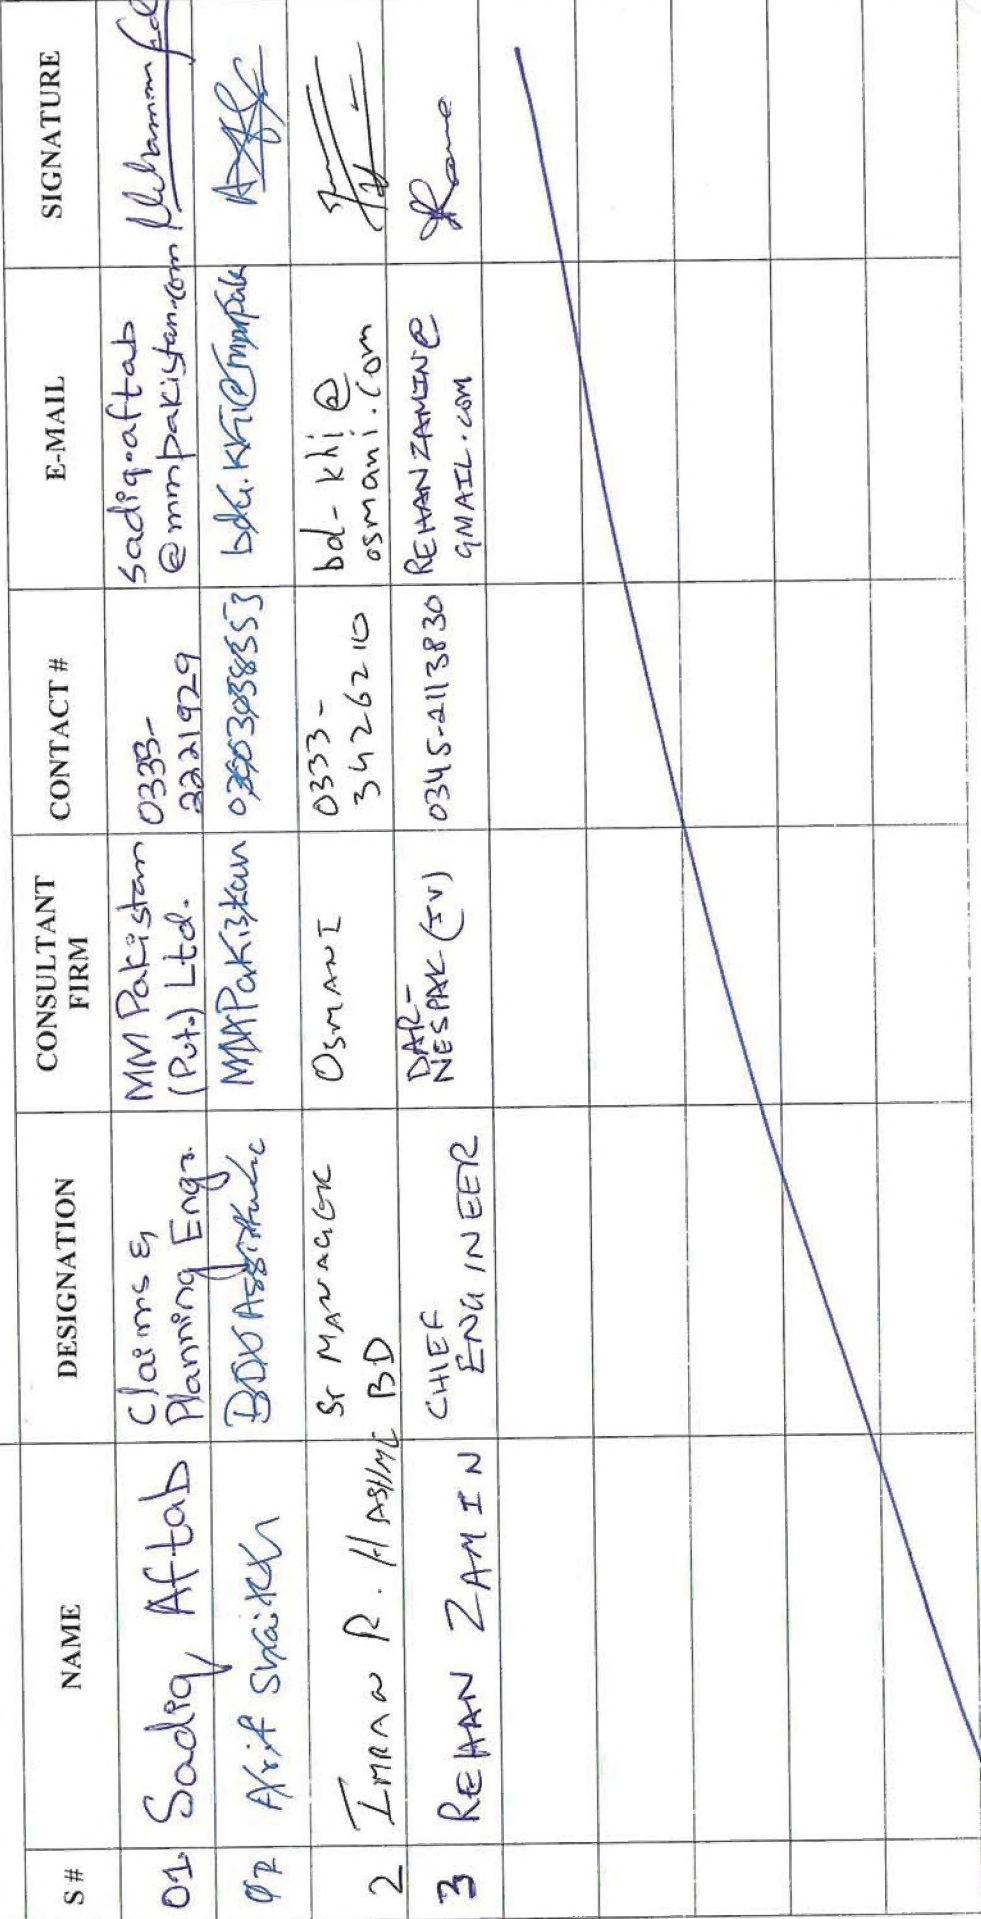 S # NAME DESIGNATION CONSULTANT FIRM CONTACT # E-MAIL SIGNATURE
01. Sadiq Aftab Claims & Planning Engr. MM Pakistan (Pvt.) Ltd. 0333-2221929 sadiq.aftab@mmpakistan.com
02 Arif Shaikh BDO Assistant MM Pakistan
2 IMRAN R. HASHMI Sr MANAGER BD OSMANI 0333-3426210 bd-khi@osmani.com
3 REHAN ZAMIN CHIEF ENGINEER DAR-NESPAK (JV) 0345-2113830 REHANZAMIN@GMAIL.COM